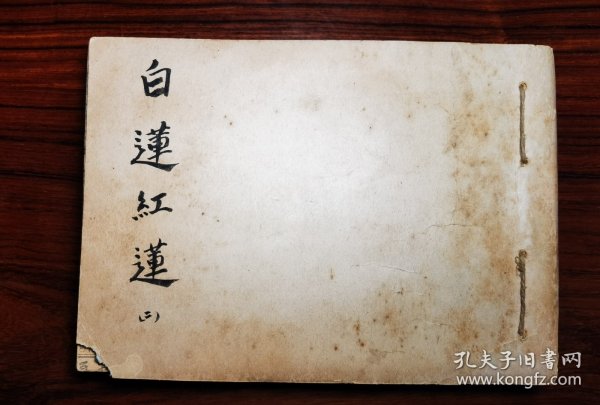 白蓮紅蓮
(二)
孔夫子旧書网
www.kongfz.com